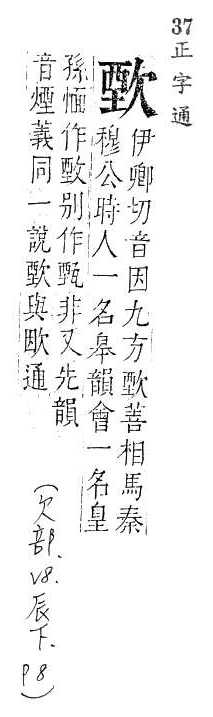 37
正字通
歅
伊卿切音因九方歅善相馬秦
穆公時人一名皋韻會一名皇
孫愐作别作甄非又先韻
音煙義同一說歅與通
(欠部. v8. 辰下. P8)